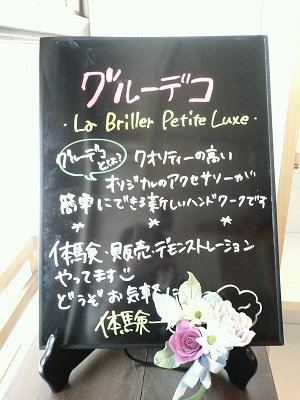 グルーデコ
・La Briller Petite Luxe・
グルーデコとは？ クオリティーの高い
オリジナルのアクセサリーが
簡単にできる新しいハンドワークです
体験・販売・デモンストレーション
やってます
どうぞお気軽に
体験